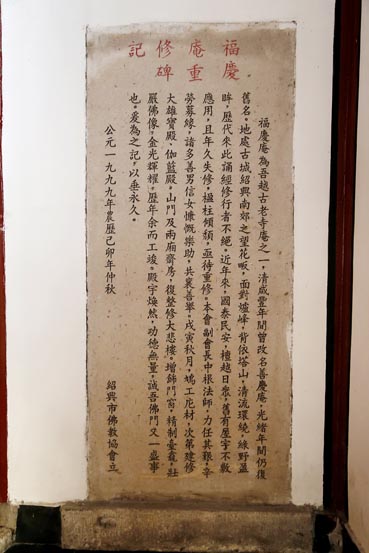 福慶
庵重
修碑
記
福慶庵為吾越古老寺庵之一，清咸豐年間曾改名善慶庵，光緒年間仍復
舊名。地處古城紹興南郊之望花畈，面對爐峰，背依塔山，清流環繞，綠野盈
眸，歷代來此誦經修行者不絕。近年來，國泰民安，檀越日衆，舊有屋宇不敷
應用，且年久失修，楹柱傾頹，亟待重修。本會副會長中根法師，力任其艱，辛
勞募緣，諸多善男信女慷慨樂助，共襄善舉。戊寅秋月，鳩工庀材，次第建修
大雄寶殿、伽藍殿、山門及兩廂齋房，復整修大悲樓。增飾門窗，精制臺龕，壯
嚴佛像，金光輝耀。歷年余而工竣。殿宇煥然，功德無量，誠吾佛門又一盛事
也。爰為之記，以垂永久。
公元一九九九年農歷己卯年仲秋
紹興市佛教協會立